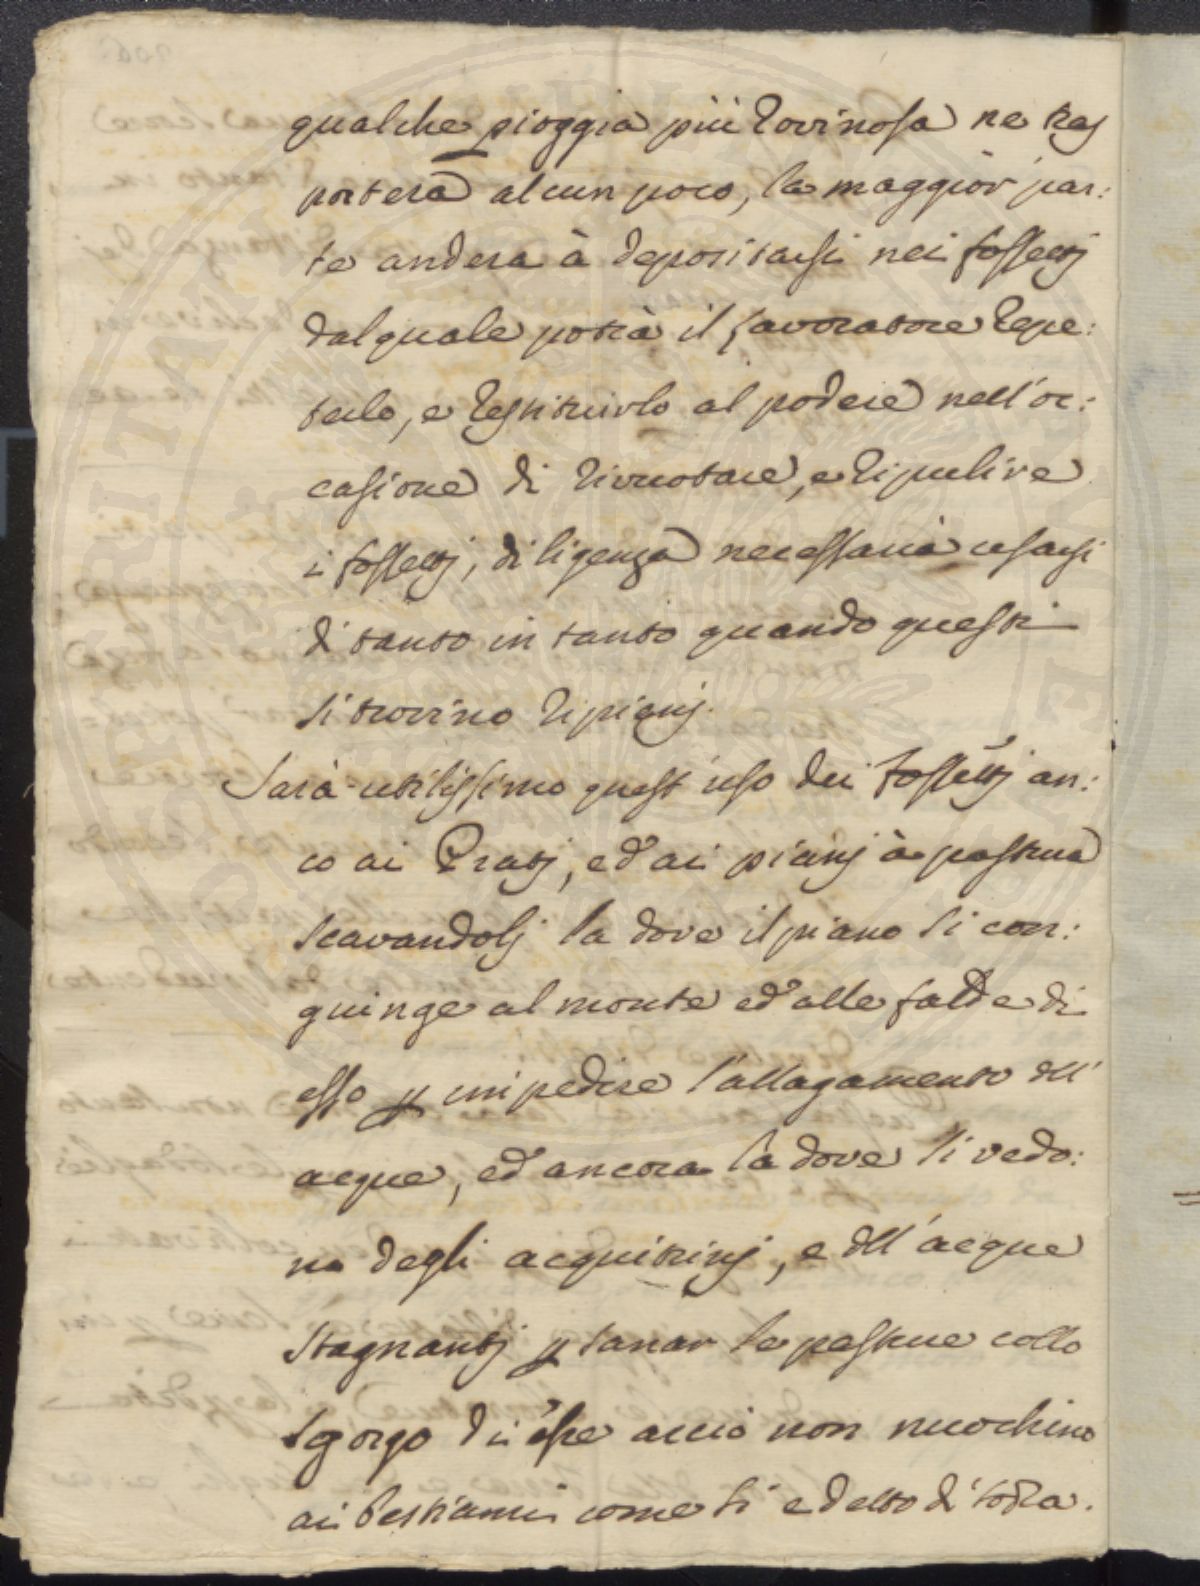 qualche pioggia più rovinosa ne tras
porterà alcun poco, la maggior par:
te anderà à depositarsi nei fossettj
dal quale potrà il lavoratore repe:
terlo, e restituirlo al podere nell'oc:
casione di rivuotare, e ripulire
i fossettj, diligenza necessaria usarsi
di tanto in tanto quando questi
si trovino ripienj.
Sarà utilissimo quest'uso dei fossettj an:
co ai Pratj, ed ai pianj à pastura
scavandolj la dove il piano si con:
guinge al monte ed alle falde di
esso p impedire l'allagamento dll'
acque, ed ancora là dove si vedo:
no degli acquitrinj, e dll'acque
stagnantj p sanar le pasture collo
sgorgo di esse acciò non nuochino
ai bestiami come si e detto di sopra.